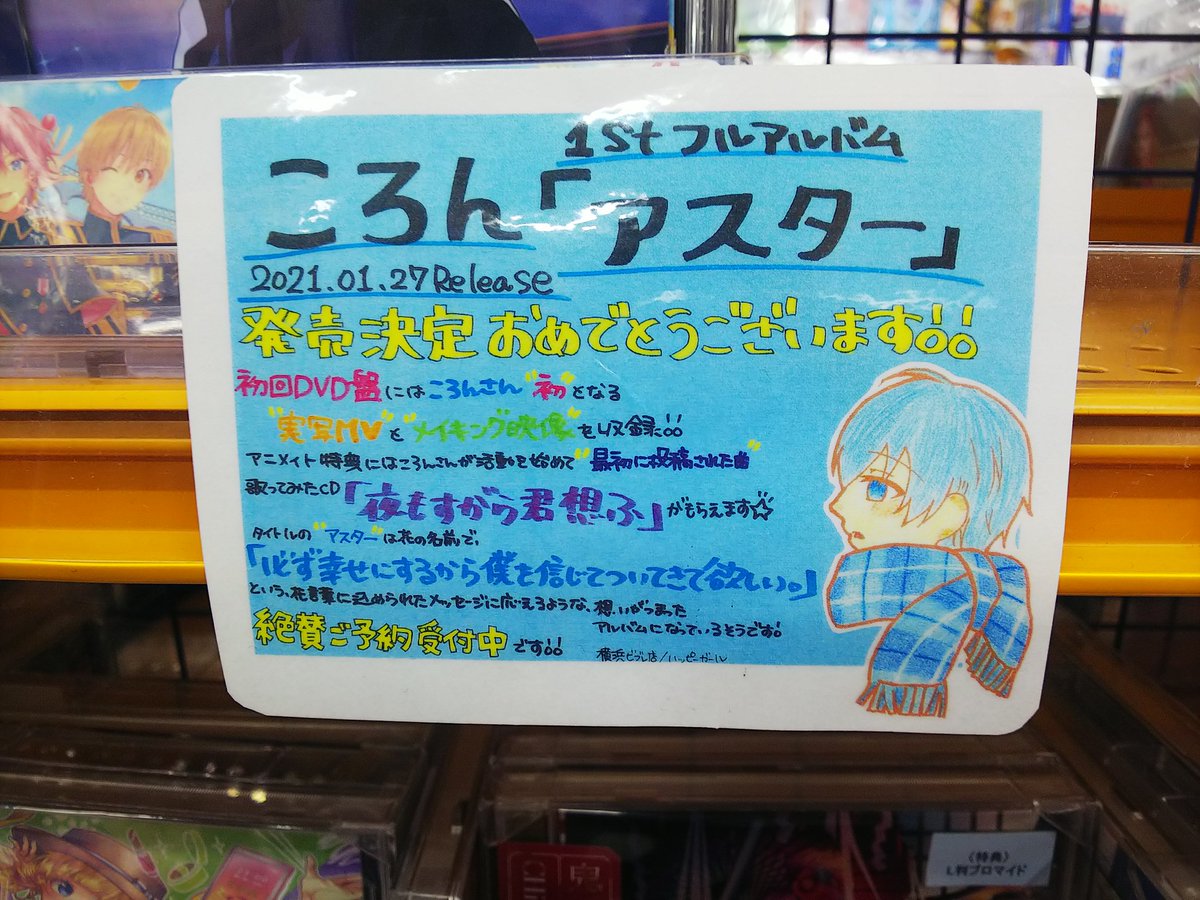 1stフルアルバム
ころん「アスター」
2021.01.27Release
発売決定おめでとうございます!!
初回DVD盤にはころんさん"初"となる
"実写MV"と"メイキング映像"を収録!!
アニメイト特典にはころんさんが活動を始めて"最初に投稿された曲"
歌ってみたCD「夜もすがら君想ふ」がもらえます☆
タイトルの"アスター"は花の名前で、
「必ず幸せにするから僕を信じてついてきて欲しい。」
という、花言葉に込められたメッセージに応えるような、想いがつまった
アルバムになっているそうです!
絶賛ご予約受付中です!!
横浜ビブレ店/ハッピーガール
〈特典〉
L判ブロマイド